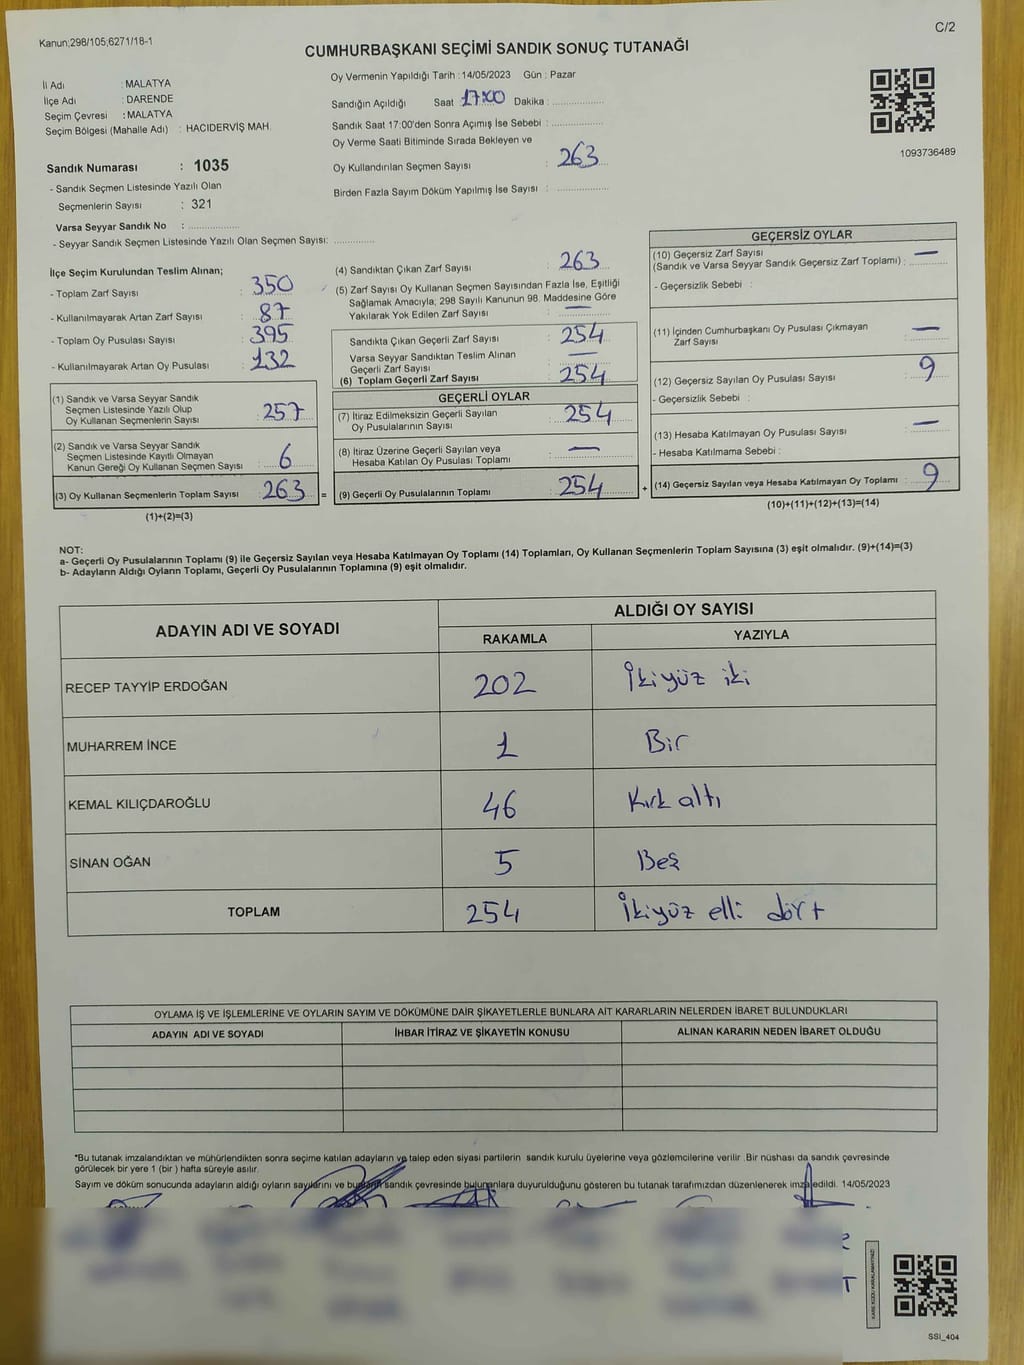 Kanun;298/105;6271/18-1
C/2
CUMHURBAŞKANI SEÇİMİ SANDIK SONUÇ TUTANAĞI
İl Adı : MALATYA
İlçe Adı : DARENDE
Seçim Çevresi : MALATYA
Seçim Bölgesi (Mahalle Adı) : HACIDERVİŞ MAH.
Sandık Numarası : 1035
- Sandık Seçmen Listesinde Yazılı Olan
Seçmenlerin Sayısı : 321
Varsa Seyyar Sandık No : ....................
- Seyyar Sandık Seçmen Listesinde Yazılı Olan Seçmen Sayısı: ...............
Oy Vermenin Yapıldığı Tarih : 14/05/2023 Gün : Pazar
Sandığın Açıldığı Saat 17:00 Dakika : ....................
Sandık Saat 17:00'den Sonra Açımış İse Sebebi : ....................
Oy Verme Saati Bitiminde Sırada Bekleyen ve
Oy Kullandırılan Seçmen Sayısı : 263
Birden Fazla Sayım Döküm Yapılmış İse Sayısı : ....................
1093736489
İlçe Seçim Kurulundan Teslim Alınan;
- Toplam Zarf Sayısı : 350
- Kullanılmayarak Artan Zarf Sayısı : 87
- Toplam Oy Pusulası Sayısı : 395
- Kullanılmayarak Artan Oy Pusulası : 132
(1) Sandık ve Varsa Seyyar Sandık
Seçmen Listesinde Yazılı Olup
Oy Kullanan Seçmenlerin Sayısı : 257
(2) Sandık ve Varsa Seyyar Sandık
Seçmen Listesinde Kayıtlı Olmayan
Kanun Gereği Oy Kullanan Seçmen Sayısı : 6
(3) Oy Kullanan Seçmenlerin Toplam Sayısı : 263 =
(1)+(2)=(3)
(4) Sandıktan Çıkan Zarf Sayısı : 263
(5) Zarf Sayısı Oy Kullanan Seçmen Sayısından Fazla İse, Eşitliği
Sağlamak Amacıyla; 298 Sayılı Kanunun 98. Maddesine Göre
Yakılarak Yok Edilen Zarf Sayısı : —
Sandıkta Çıkan Geçerli Zarf Sayısı : 254
Varsa Seyyar Sandıktan Teslim Alınan
Geçerli Zarf Sayısı : —
(6) Toplam Geçerli Zarf Sayısı : 254
GEÇERLİ OYLAR
(7) İtiraz Edilmeksizin Geçerli Sayılan
Oy Pusulalarının Sayısı : 254
(8) İtiraz Üzerine Geçerli Sayılan veya
Hesaba Katılan Oy Pusulası Toplamı : —
(9) Geçerli Oy Pusulalarının Toplamı : 254 +
GEÇERSİZ OYLAR
(10) Geçersiz Zarf Sayısı
(Sandık ve Varsa Seyyar Sandık Geçersiz Zarf Toplamı) : —
- Geçersizlik Sebebi :
(11) İçinden Cumhurbaşkanı Oy Pusulası Çıkmayan
Zarf Sayısı : —
(12) Geçersiz Sayılan Oy Pusulası Sayısı : 9
- Geçersizlik Sebebi :
(13) Hesaba Katılmayan Oy Pusulası Sayısı : —
- Hesaba Katılmama Sebebi :
(14) Geçersiz Sayılan veya Hesaba Katılmayan Oy Toplamı : 9
(10)+(11)+(12)+(13)=(14)
NOT:
a- Geçerli Oy Pusulalarının Toplamı (9) ile Geçersiz Sayılan veya Hesaba Katılmayan Oy Toplamı (14) Toplamları, Oy Kullanan Seçmenlerin Toplam Sayısına (3) eşit olmalıdır. (9)+(14)=(3)
b- Adayların Aldığı Oyların Toplamı, Geçerli Oy Pusulalarının Toplamına (9) eşit olmalıdır.
ADAYIN ADI VE SOYADI
ALDIĞI OY SAYISI
RAKAMLA YAZIYLA
RECEP TAYYİP ERDOĞAN 202 İkiyüz iki
MUHARREM İNCE 1 Bir
KEMAL KILIÇDAROĞLU 46 Kırk altı
SİNAN OĞAN 5 Beş
TOPLAM 254 İkiyüz elli dört
OYLAMA İŞ VE İŞLEMLERİNE VE OYLARIN SAYIM VE DÖKÜMÜNE DAİR ŞİKAYETLERLE BUNLARA AİT KARARLARIN NELERDEN İBARET BULUNDUKLARI
ADAYIN ADI VE SOYADI İHBAR İTİRAZ VE ŞİKAYETİN KONUSU ALINAN KARARIN NEDEN İBARET OLDUĞU
*Bu tutanak imzalandıktan ve mühürlendikten sonra seçime katılan adayların ve talep eden siyasi partilerin sandık kurulu üyelerine veya gözlemcilerine verilir .Bir nüshası da sandık çevresinde
görülecek bir yere 1 (bir ) hafta süreyle asılır.
Sayım ve döküm sonucunda adayların aldığı oyların sayılarını ve bunların sandık çevresinde bulunanlara duyurulduğunu gösteren bu tutanak tarafımızdan düzenlenerek imza edildi. 14/05/2023
KARE KODU KARALAMAYINIZ!
SSİ_404